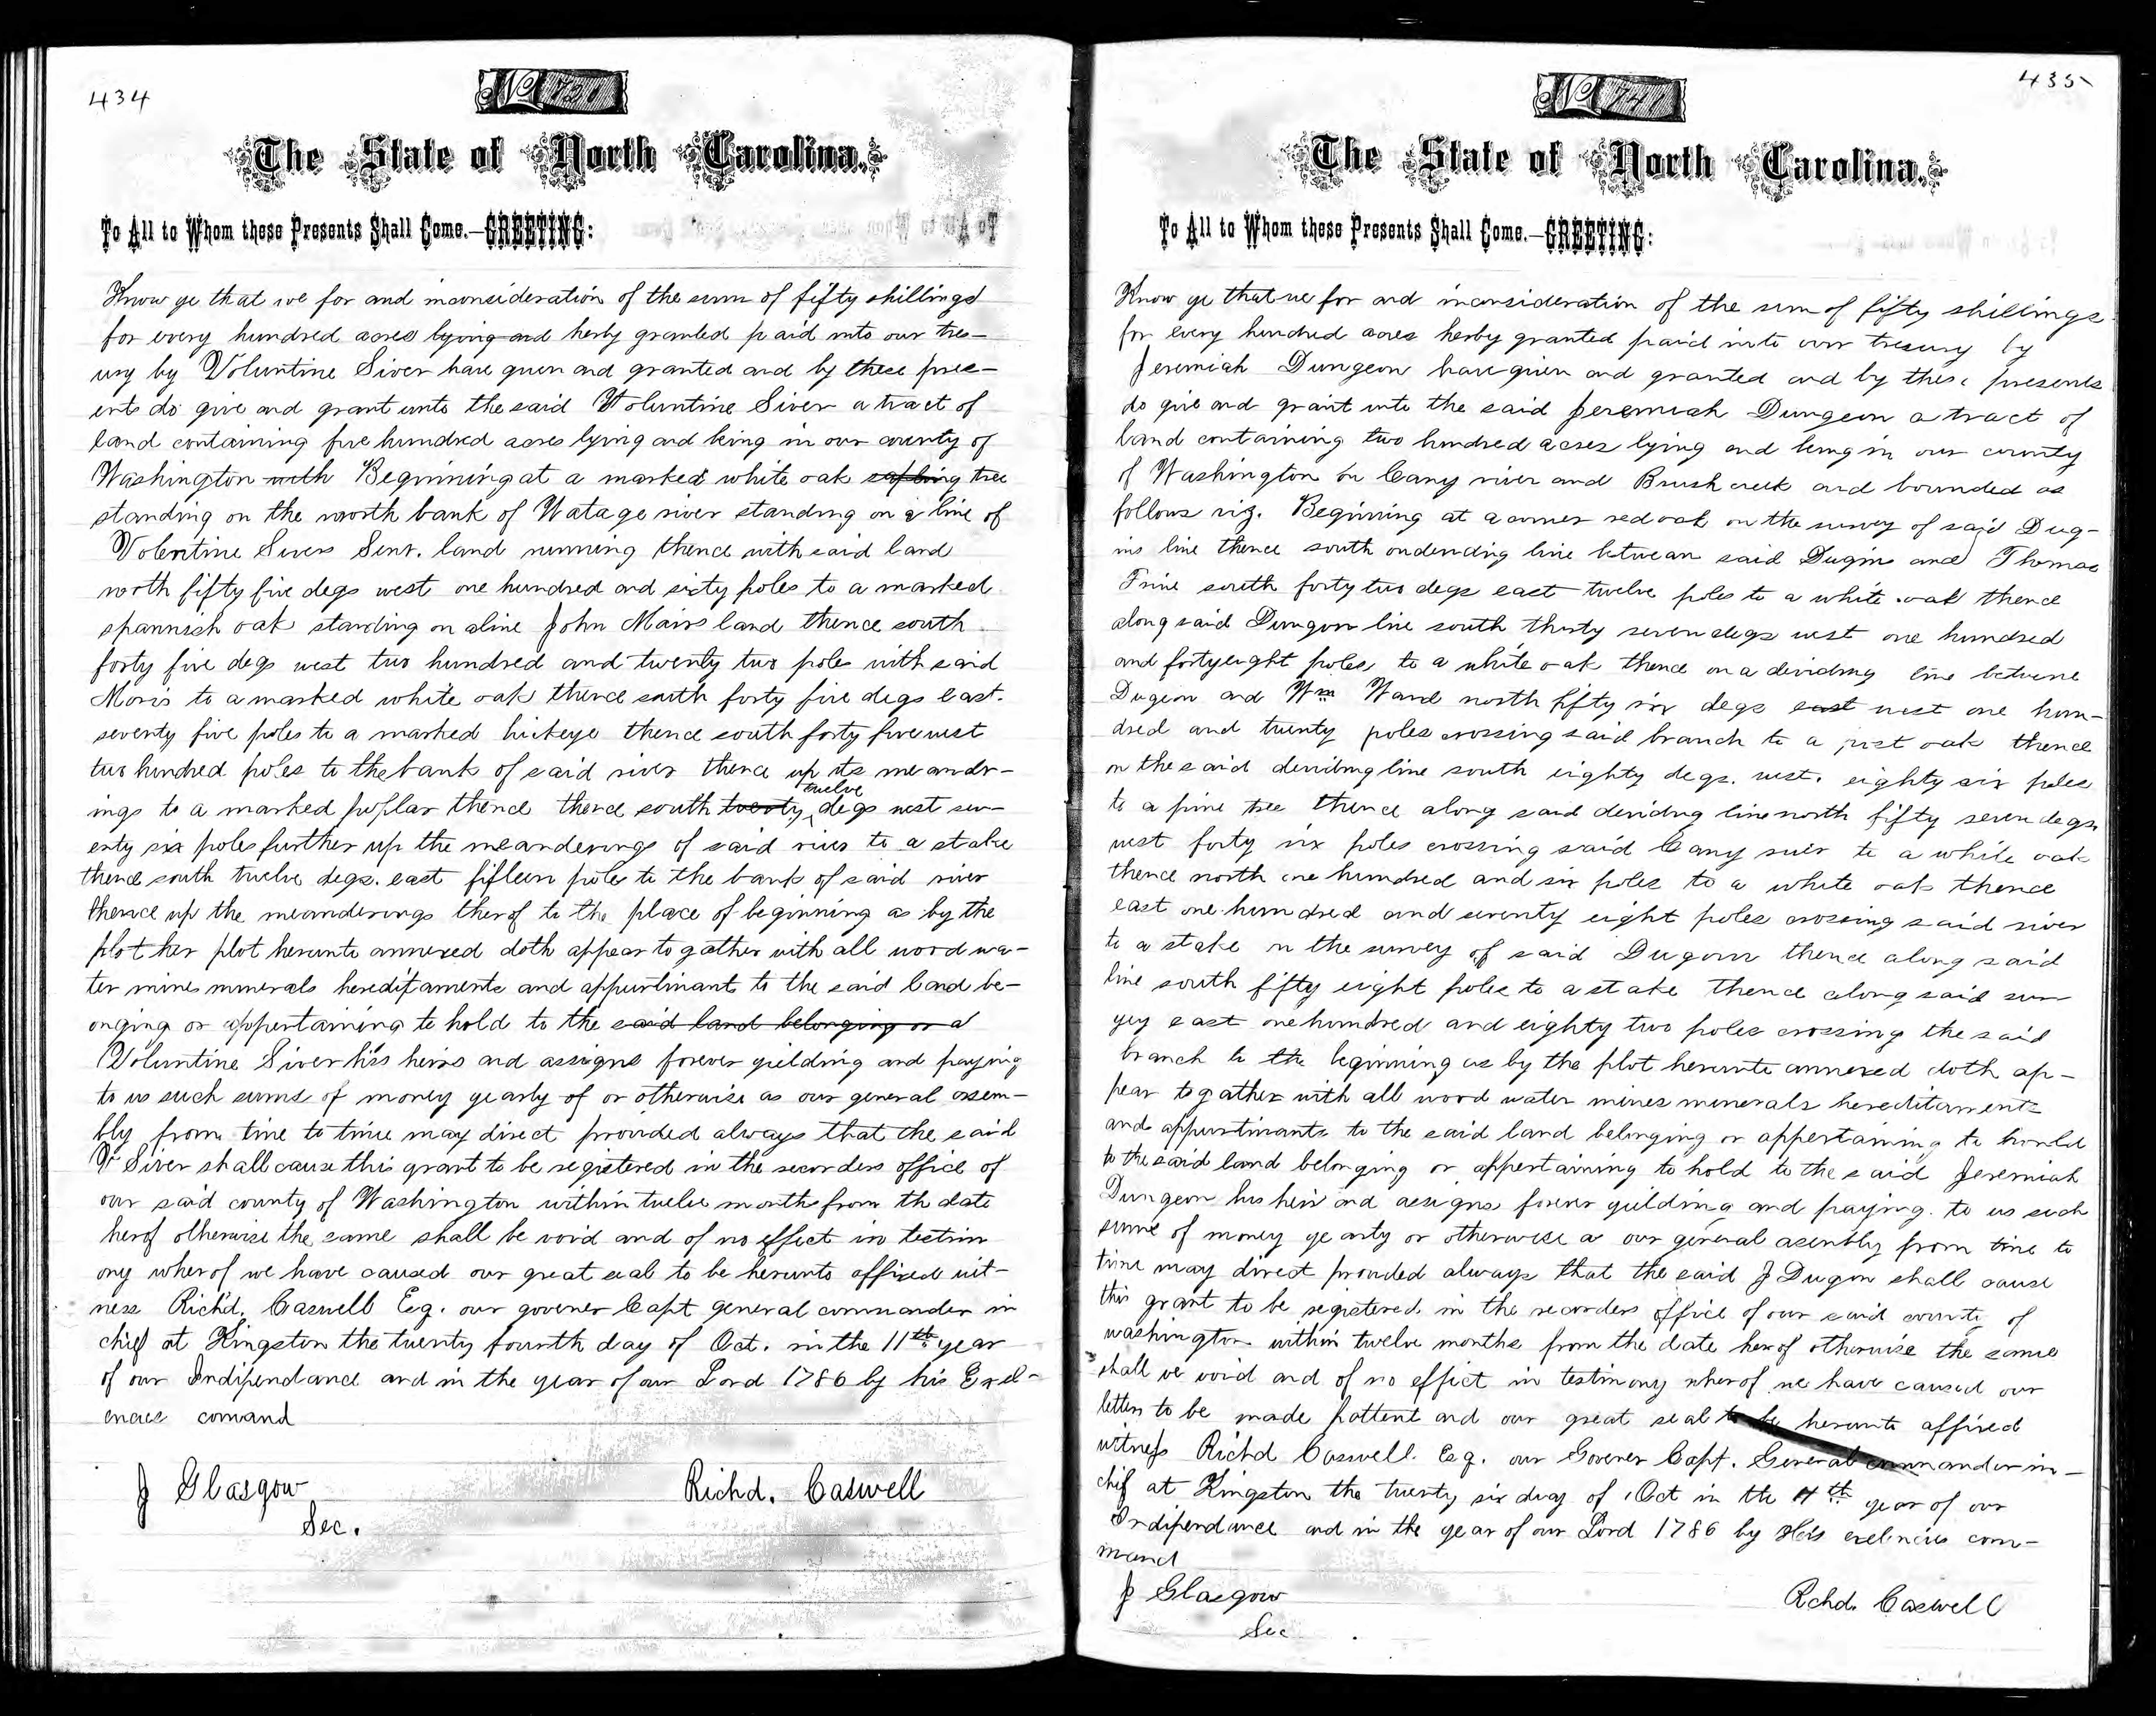 434
No 731
The State of North Carolina.
To All to Whom these Presents Shall Come.—GREETING:
Know ye that we for and inconsideration of the sum of fifty shillings
for every hundred acres lying and herby granted paid into our tres-
ury by Voluntine Siver have given and granted and by these pres-
ents do give and grant unto the said Voluntine Siver a tract of
land containing five hundred acres lying and being in our county of
Washington with Beginning at a marked white oak sapling tree
standing on the north bank of Watage river standing on a line of
Volentine Sivers Senr. land running thence with said land
north fifty five degs west one hundred and sixty poles to a marked
spannish oak standing on aline John Mairs land thence south
forty five degs west two hundred and twenty two poles with said
Moris to a marked white oak thence south forty five degs east.
seventy five poles to a marked hickeye thence south forty five west
two hundred poles to the bank of said river thence up its meandr-
ings to a marked poplar thence thence south twenty twelve degs west sev-
enty six poles further up the meanderings of said river to a stake
thence south twelve degs. east fifteen poles to the bank of said river
thence up the meanderings therof to the place of beginning as by the
plot her plot herunto annexed doth appear to gather with all wood wa-
ter mines minerals hereditaments and appurtinants to the said land be-
onging or appertaining to hold to the said land belonging or a
Voluntine Siver his heirs and assigns forever yielding and paying
to us such sums of money yearly of or otherwise as our general assem-
bly from time to time may direct provided always that the said
V Siver shall cause this grant to be registered in the recorders office of
our said county of Washington within twelve months from th date
herof otherwise the same shall be void and of no effect in testim
ony wherof we have caused our great seal to be herunto affixed wit-
ness Richd. Caswell Esq. our governer Capt general commander in
chief at Kingston the twenty fourth day of Oct. in the 11th year
of our Indipendance and in the year of our Lord 1786 by his Exel-
encies comand
J Glasgow
Sec.
Richd. Caswell
435
No 741
The State of North Carolina.
To All to Whom these Presents Shall Come.—GREETING:
Know ye that we for and inconsideration of the sum of fifty shillings
for every hundred acres herby granted paid into our tresury by
Jeremiah Dungeon have given and granted and by these presents
do give and grant unto the said Jeremiah Dungeon a tract of
land containing two hundred acres lying and being in our county
of Washington on Cany river and Brush creek and bounded as
follows viz. Beginning at a corner red oak on the survey of said Dug-
ins line thence south ondeviding line betwean said Dugins and Thomas
south forty two degs east twelve poles to a white oak thence
along said Dungon line south thirty seven degs west one hundred
and forty eight poles to a white oak thence on a deviding line betwene
Dugeon and Wm Ward north fifty six degs east west one hun-
dred and twenty poles crossing said branch to a post oak thence
on the said devidingline south eighty degs. west. eighty six poles
to a pine tree thence along said deviding line north fifty seven degs
west forty six poles crossing said Cany river to a white oak
thence north one hundred and six poles to a white oak thence
east one hundred and seventy eight poles crossing said river
to a stake in the survey of said Dugeon thence along said
line south fifty eight poles to a stake thence along said sur-
yey east one hundred and eighty two poles crossing the said
branch to the beginning as by the plot herunto annexed doth ap-
pear to gather with all wood water mines minerals hereditaments
and appurtinants to the said land belonging or appertaining to hould
to the said land belonging or appertaining to hold to the said Jeremiah
Dungeon his heirs and assigns forever yielding and paying. to us such
sums of money yearly or otherwise a our general asembly from time to
time may direct provided always that the said J Dugon shall cause
this grant to be registered in the recorders office of our said county of
washington within twelve months from the date herof otherwise the same
shall be void and of no effect in testimony wherof we have caused our
letters to be made pattent and our great seal to be herunto affixed
witness Richd Caswell. Esq. our Governer Capt. General commander in-
chif at Kingston the twenty six day of Oct in the 11th year of our
Indipendance and in the year of our Lord 1786 by His exelencies com-
mand
J Glasgow
Sec
Rchd. Caswell